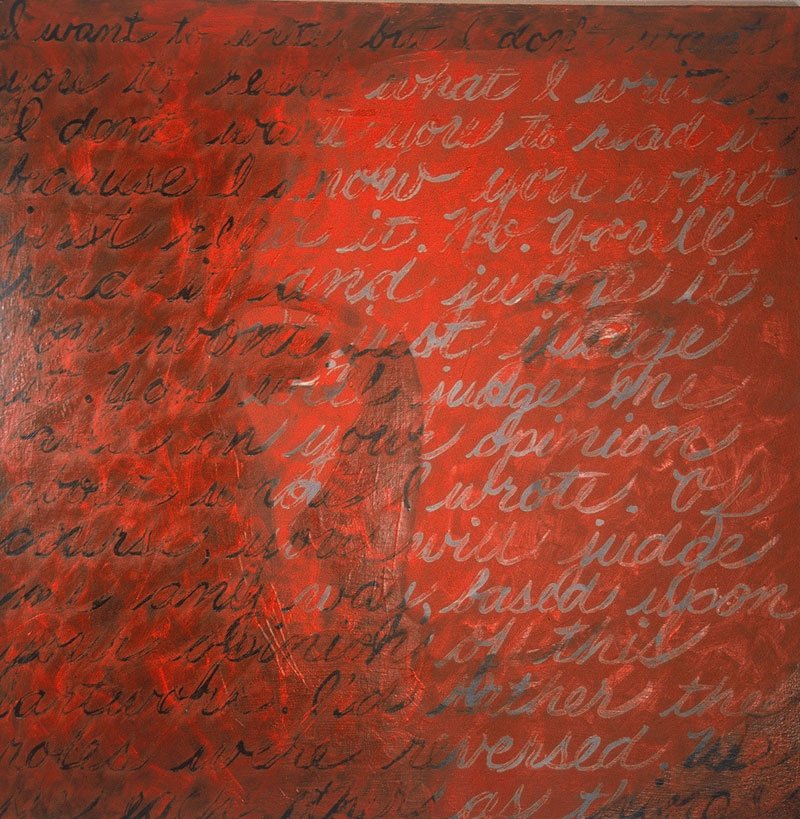 I want to write but I don't want
you to read what I write.
I don't want you to read it
because I know you won't
just read it. No. You'll
read it and judge it.
You won't just judge
it. You will judge me
on your opinion
about what I wrote. Of
course, you will judge
me any way, based upon
your opinion of this
artwork. I'd rather the
roles were reversed. We
each other as